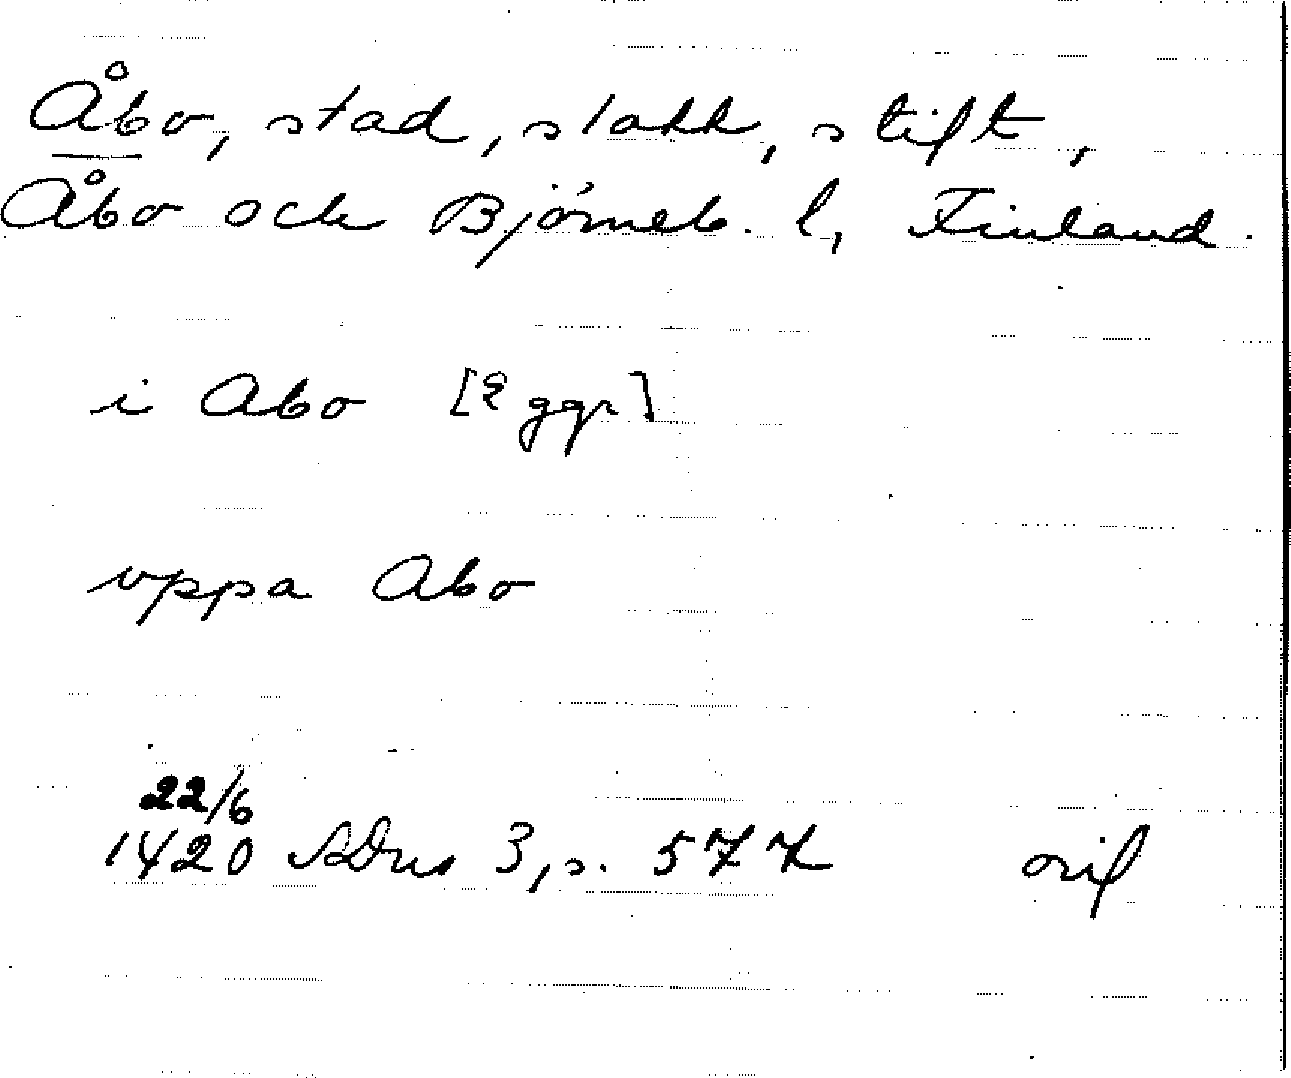 Åbo, stad, slott, stift,
Åbo och Björneb. l, Finland.
i Abo [2 ggr]
vppa Abo
22/6
1420 SDns 3, s. 577 orig